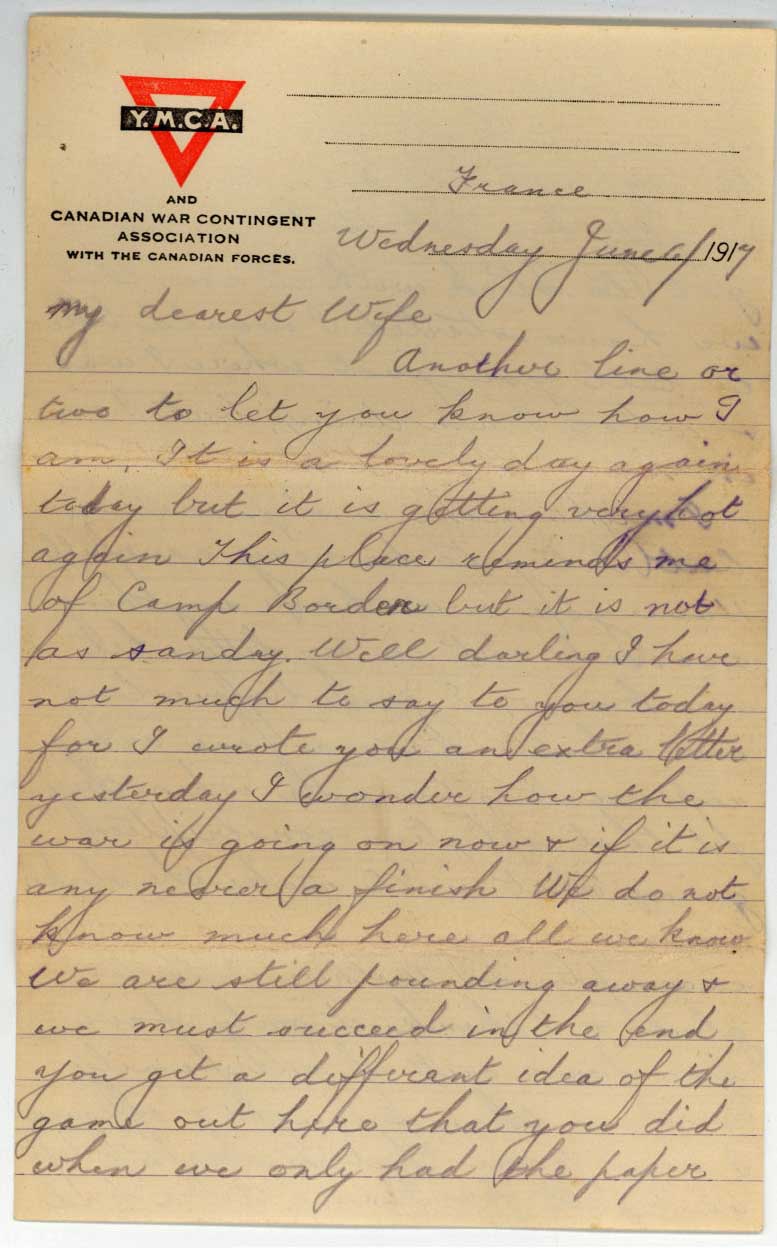 Y.M.C.A.
AND
CANADIAN WAR CONTINGENT
ASSOCIATION
WITH THE CANADIAN FORCES.
France
Wednesday June 6/ 1917
My dearest Wife
Another line or
two to let you know how I
am, It is a lovely day again
today but it is getting very hot
again This place reminds me
of Camp Borden but it is not
as sanday. Well darling I have
not much to say to you today
for I wrote you an extra letter
yesterday I wonder how the
war is going on now & if it is
any nearer a finish We do not
know much here all we know
We are still pounding away &
we must succeed in the end
you get a different idea of the
game out here that you did
when we only had the paper